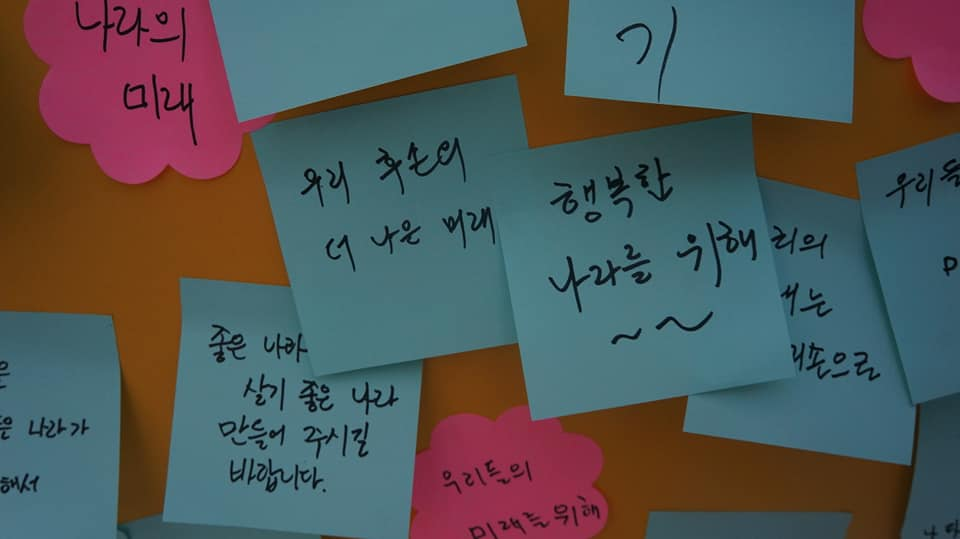 나라의
미래
기
우리 후손의
더 나은 미래
행복한
나라를 위해
~~
리의
는
리손으로
우리들
좋은 나라
살기 좋은 나라
만들어 주시길
바랍니다.
은 나라가
해서
우리들의
미래를 위해